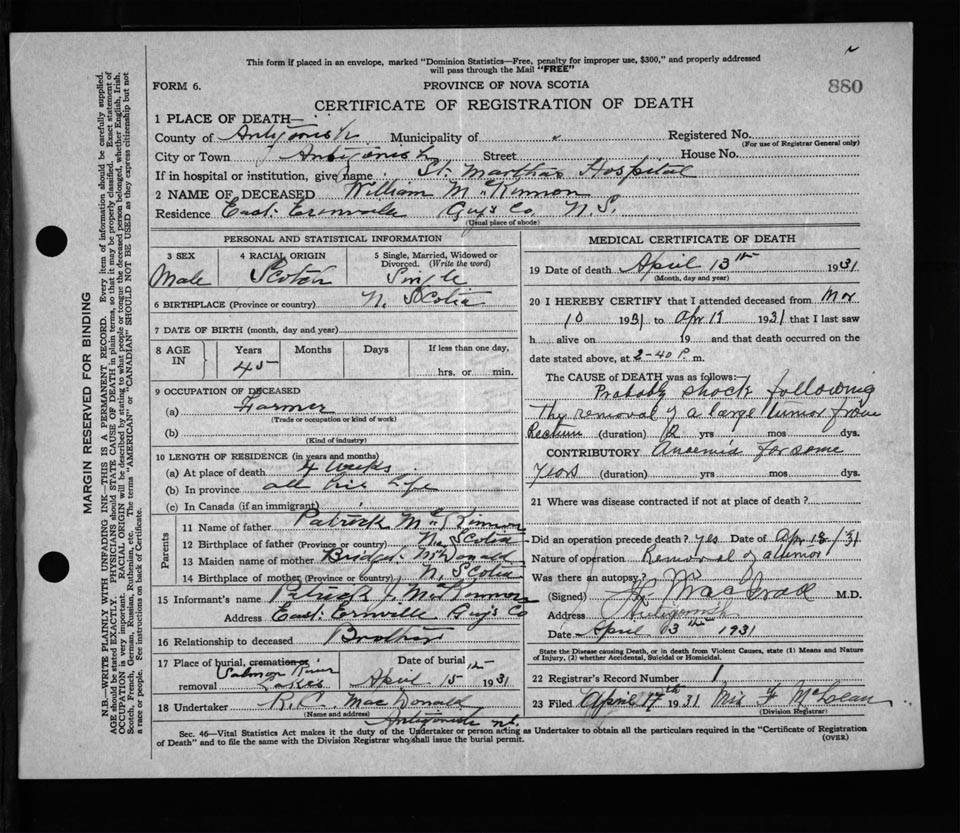 This form if placed in an envelope, marked "Dominion Statistics—Free, penalty for improper use, $300," and properly addressed
will pass through the Mail "FREE"
FORM 6.
PROVINCE OF NOVA SCOTIA
880
CERTIFICATE OF REGISTRATION OF DEATH
1 PLACE OF DEATH—
County of Antigonish Municipality of Registered No.
(For use of Registrar General only)
City or Town Antigonish Street House No.
If in hospital or institution, give name St. Martha's Hospital
2 NAME OF DECEASED William McKinnon
Residence East Erinville Guy's Co. N.S.
(Usual place of abode)
PERSONAL AND STATISTICAL INFORMATION
3 SEX 4 RACIAL ORIGIN 5 Single, Married, Widowed or
Divorced. (Write the word)
Male Scotch Single
6 BIRTHPLACE (Province or country) N. Scotia
7 DATE OF BIRTH (month, day and year)
8 AGE IN Years Months Days If less than one day,
45 hrs. or min.
9 OCCUPATION OF DECEASED
(a) Farmer
(Trade or occupation or kind of work)
(b)
(Kind of industry)
10 LENGTH OF RESIDENCE (in years and months)
(a) At place of death 4 weeks
(b) In province all his life
(c) In Canada (if an immigrant)
Parents
11 Name of father Patrick McKinnon
12 Birthplace of father (Province or country) N. Scotia
13 Maiden name of mother McDonald
14 Birthplace of mother (Province or country) N. Scotia
15 Informant's name Patrick J. McKinnon
Address East Erinville Guy's Co
16 Relationship to deceased Brother
17 Place of burial, cremation or removal Salmon River Lakes
Date of burial April 15th 1931
18 Undertaker R. MacDonald
(Name and address) Antigonish
MEDICAL CERTIFICATE OF DEATH
19 Date of death April 13th 1931
(Month, day and year)
20 I HEREBY CERTIFY that I attended deceased from Mar
10 1931 to Apr 1931 that I last saw
h alive on 19 and that death occurred on the
date stated above, at 2-40 P. m.
The CAUSE OF DEATH was as follows:
Probably shock following
the removal of a large tumor from
Rectum (duration) yrs mos dys.
CONTRIBUTORY Anaemia for some
years (duration) yrs mos dys.
21 Where was disease contracted if not at place of death?
Did an operation precede death? yes Date of Apr 13/31
Nature of operation Removal of a tumor
Was there an autopsy?
(Signed) M.D.
Address Antigonish
Date April 13th 1931
State the Disease causing Death, or in death from Violent Causes, state (1) Means and Nature
of Injury, (2) whether Accidental, Suicidal or Homicidal.
22 Registrar's Record Number 1
23 Filed April 17th 1931 F McLean
(Division Registrar)
Sec. 46—Vital Statistics Act makes it the duty of the Undertaker or person acting as Undertaker to obtain all the particulars required in the "Certificate of Registration
of Death" and to file the same with the Division Registrar who shall issue the burial permit.
(OVER)
MARGIN RESERVED FOR BINDING
N.B.—WRITE PLAINLY WITH UNFADING INK—THIS IS A PERMANENT RECORD. Every item of information should be carefully supplied.
AGE should be stated EXACTLY. PHYSICIANS should STATE CAUSE OF DEATH in plain terms, so that it may be properly classified. Exact statement of
OCCUPATION is very important. RACIAL ORIGIN will be described by stating to what people or tongue the deceased person belonged, whether English, Irish,
Scotch, French, German, Russian, Ruthenian, etc. The terms "AMERICAN" or "CANADIAN" SHOULD NOT BE USED as they express citizenship but not
a race or people. See instructions on back of Certificate.